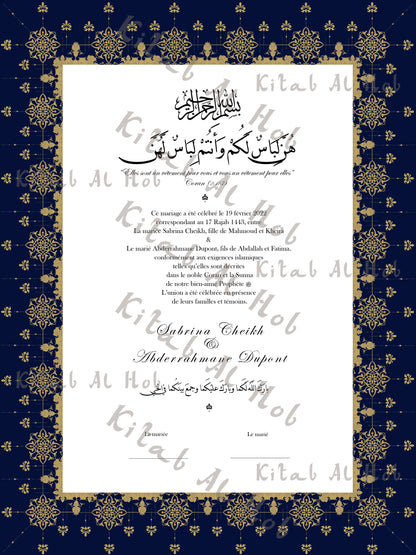 بسم الله الرحمن الرحيم
هُنَّ لِبَاسٌ لَّكُمْ وَأَنتُمْ لِبَاسٌ لَّهُنَّ
Ce mariage a été célébré le 19 février 2022
correspondant au 17 Rajab 1443, entre
La mariée Sabrina Cheikh, fille de Mahmoud et Kheira
&
Le marié Abderrahmane Dupont, fils de Abdallah et Fatima.
conformément aux exigences islamiques
telles qu'elles sont décrites
dans le noble Coran et la Sunna
de notre bien-aimé Prophète ﷺ
L'union a été célébrée en présence
de leurs familles et témoins.
Sabrina Cheikh
&
Abderrahmane Dupont
بَارَكَ اللهُ لَكُمَا وَبَارَكَ عَلَيْكُمَا وَجَمَعَ بَيْنَكُمَا فِي الْخَيْرِ
La mariée Le marié
Kitab Al Hob